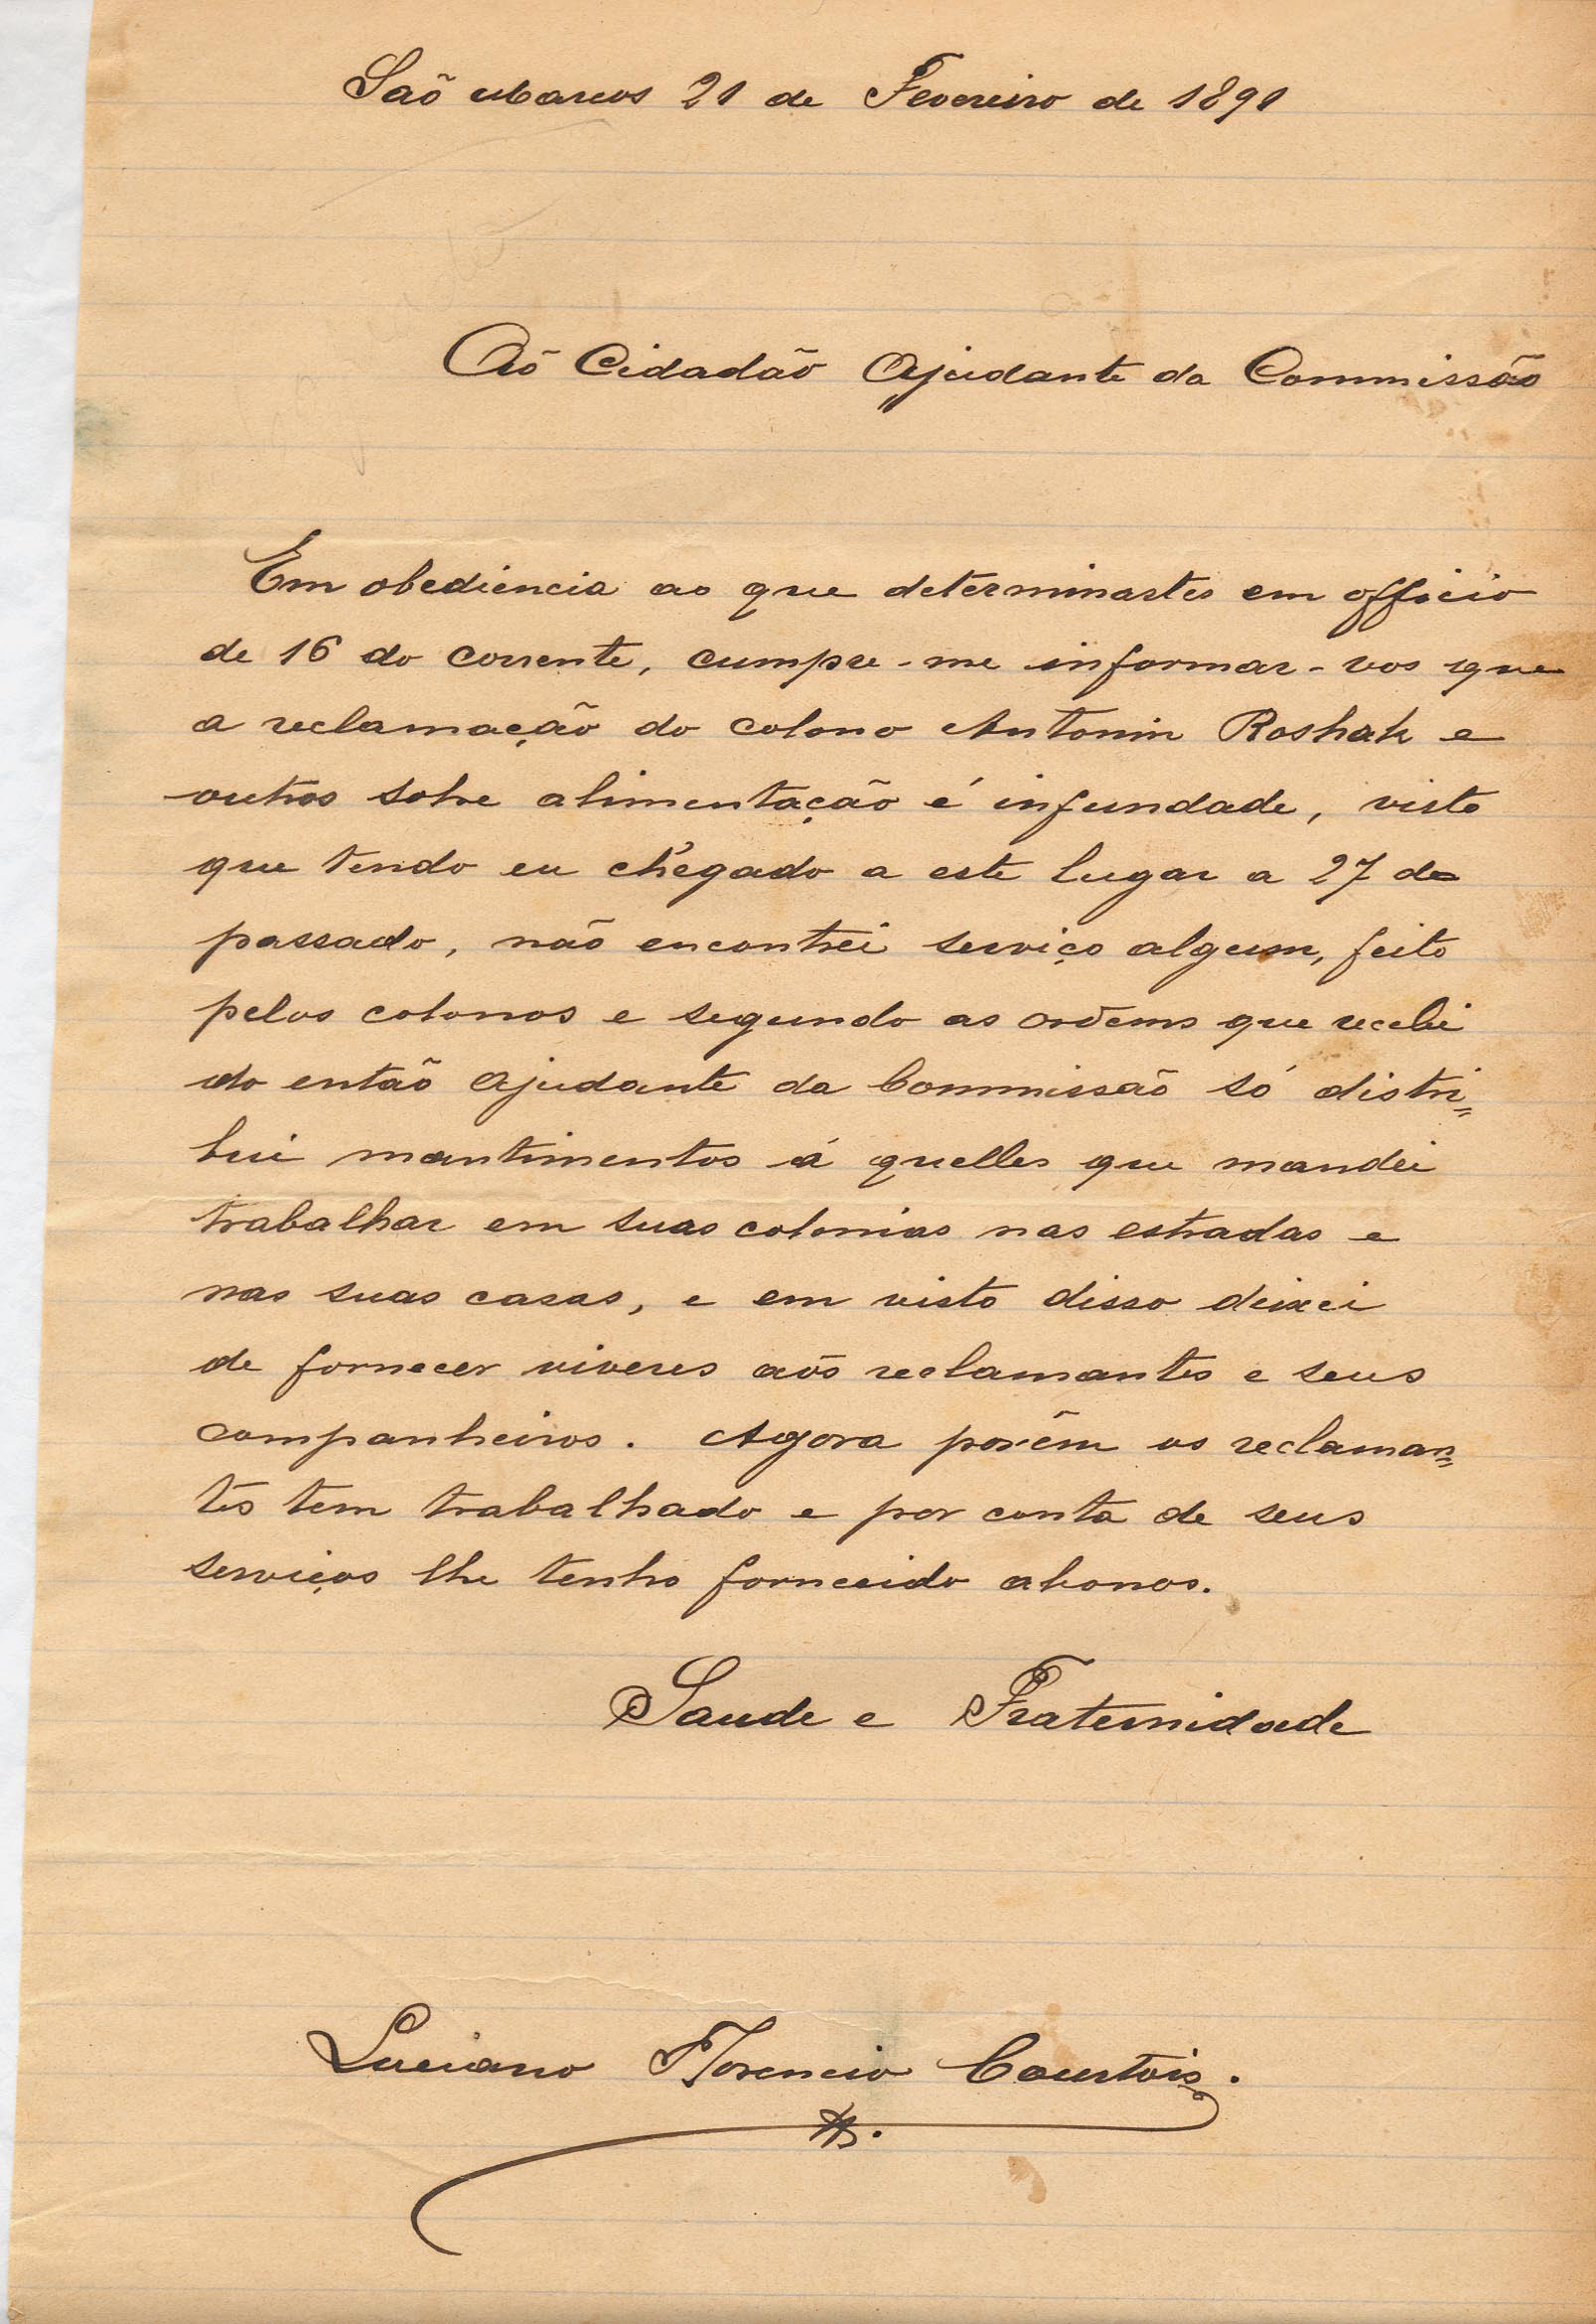 Saõ Marcos 21 de Fevereiro de 1891
Aõ Cidadão Ajudante da Commissão
Em obediencia ao que determinastes em officio
de 16 do corrente, cumpre-me informar-vos que
a reclamação do colono Antonin Roshak e
outros sobre alimentação é infundade, visto
que tendo eu chegado a este lugar a 27 do
passado, não encontrei serviço algum, feito
pelos colonos e segundo as ordems que recebi
do então Ajudante da Commissão só distri=
bui mantimentos á quelles que mandei
trabalhar em suas colonias nas estradas e
nas suas casas, e em visto disso deixei
de fornecer viveres aõs reclamantes e seus
companheiros. Agora porém os reclaman=
tes tem trabalhado e por conta de seus
serviços lhe tenho fornecido abonos.
Saude e Fraternidade
Luciano Florencio Courtois.